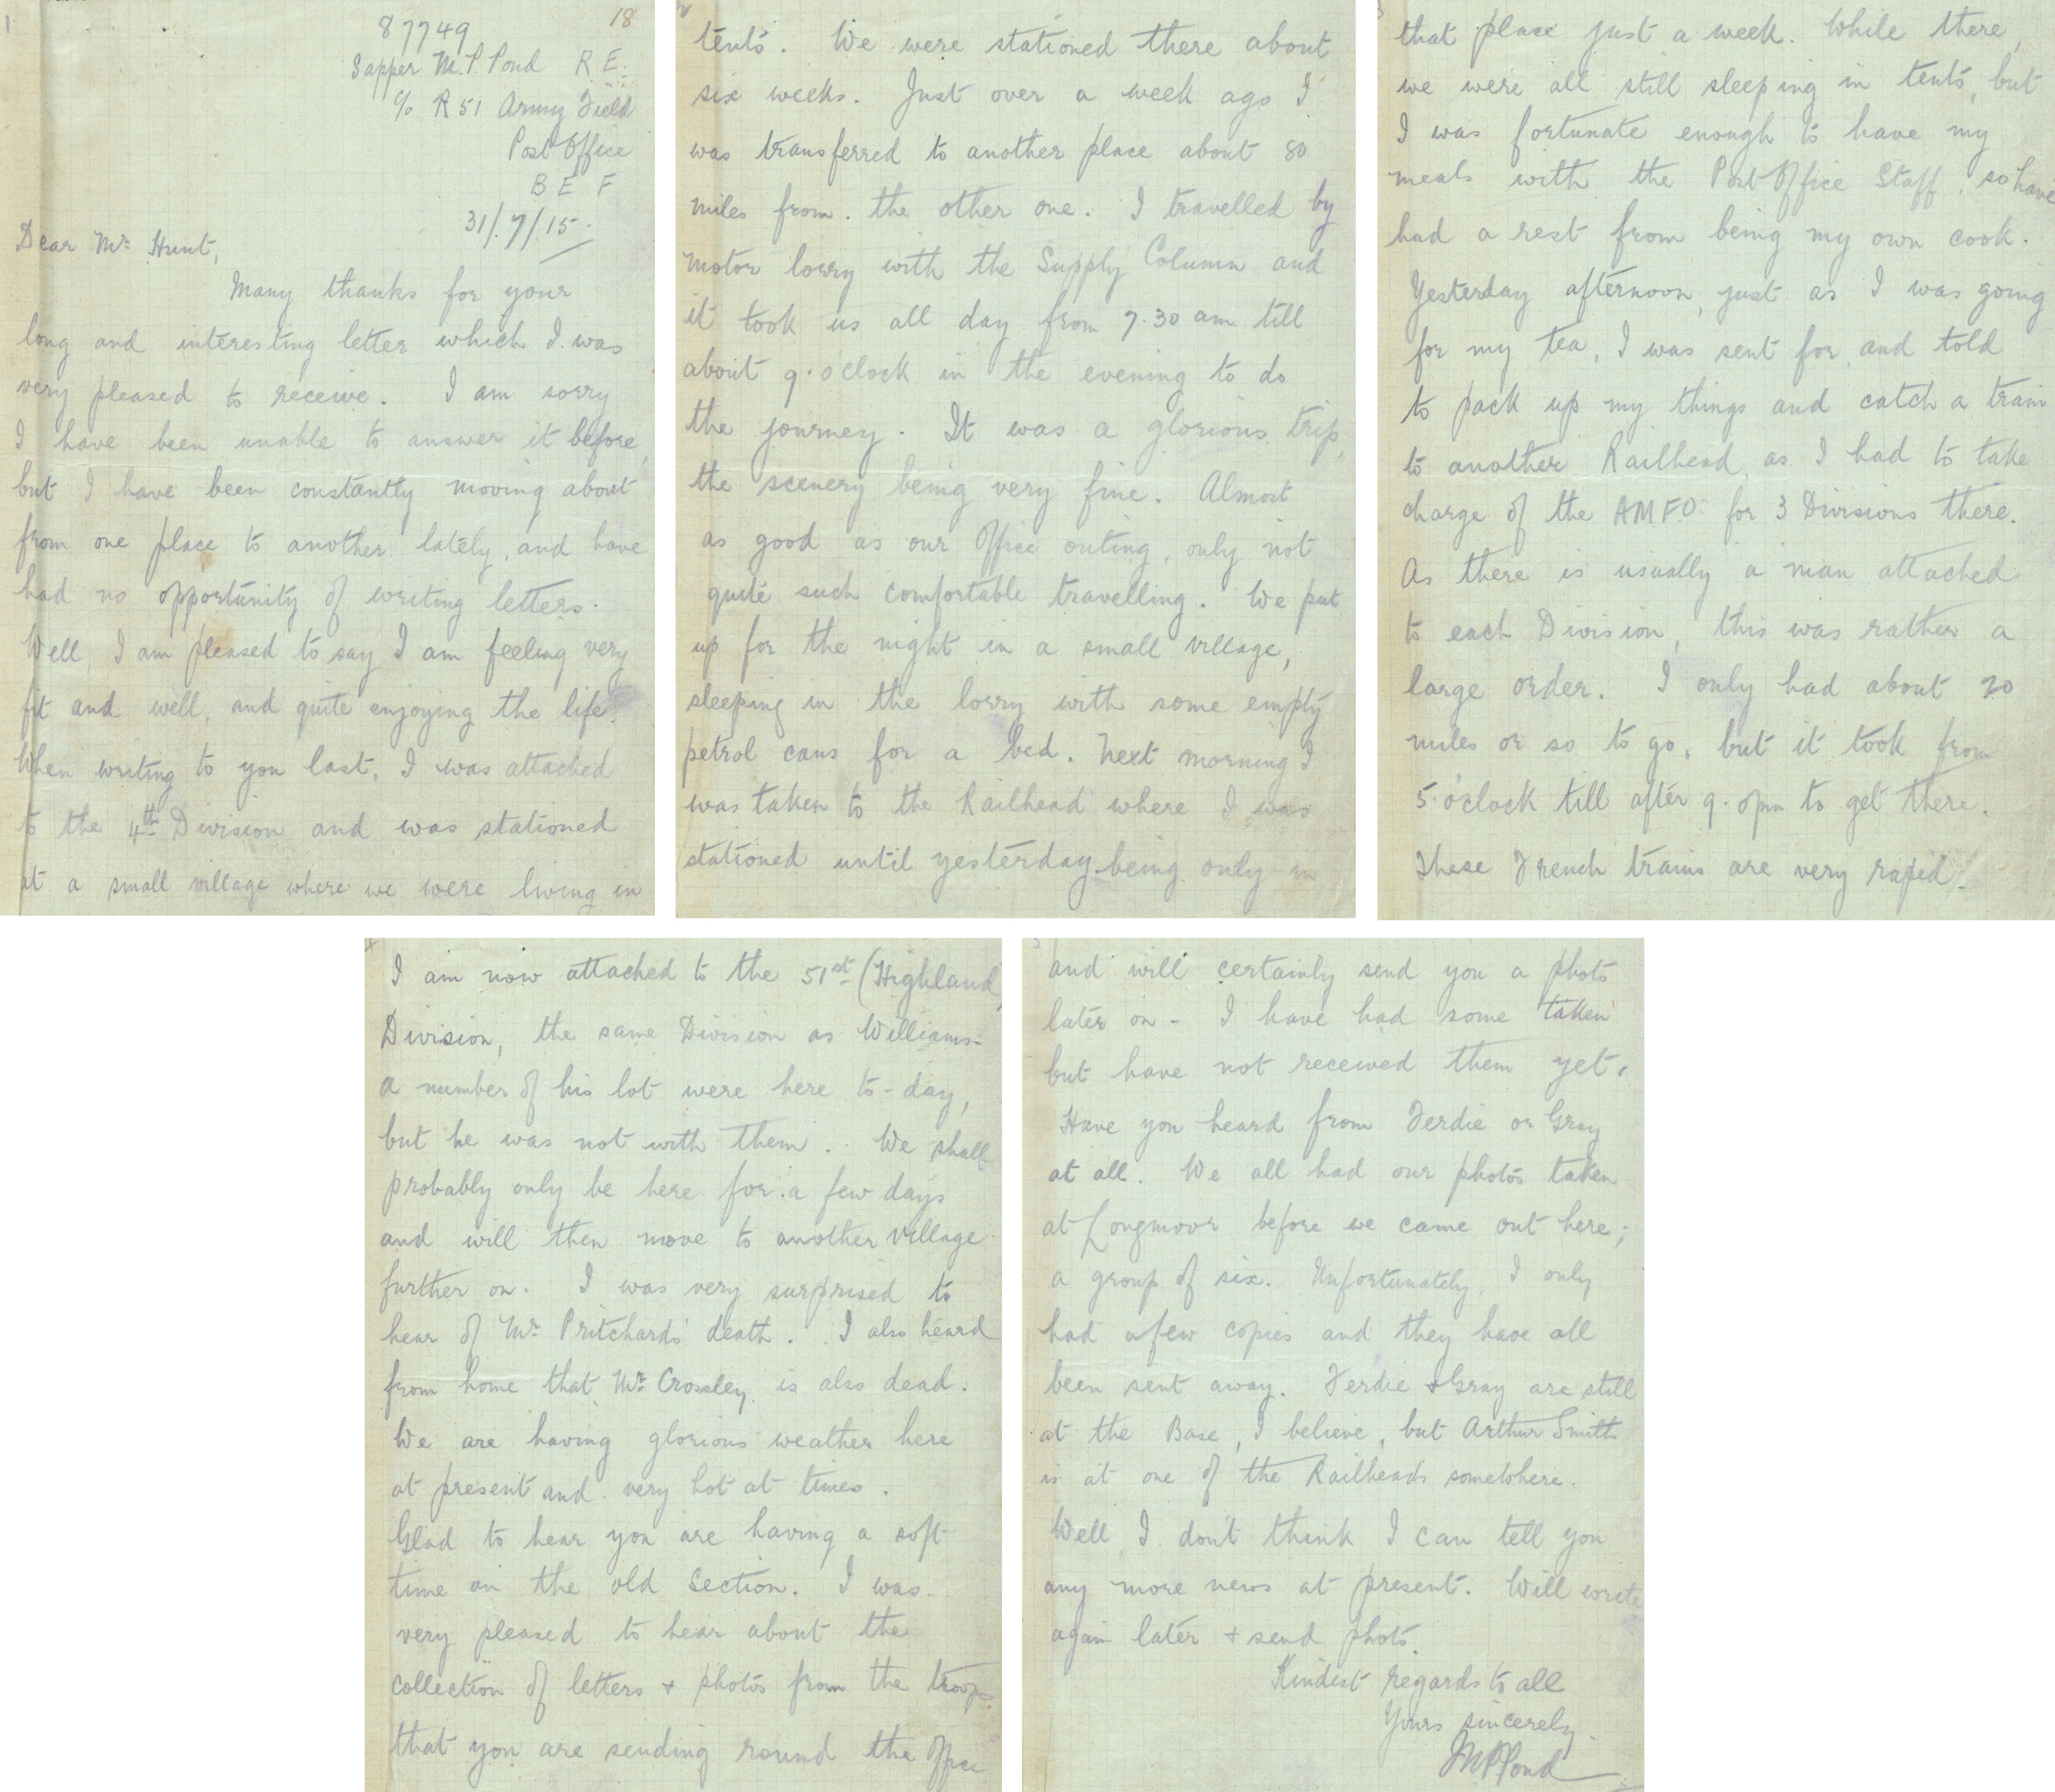 1
18
87749
Sapper M.P. Pond R E.
c/o R 51 Army Field
Post Office
B E F
31/7/15.
Dear Mr. Hunt,
Many thanks for your
long and interesting letter which I was
very pleased to receive. I am sorry
I have been unable to answer it before,
but I have been constantly moving about
from one place to another lately, and have
had no opportunity of writing letters.
Well, I am pleased to say I am feeling very
fit and well, and quite enjoying the life.
When writing to you last, I was attached
to the 4th Division and was stationed
at a small village where we were living in
2
tents. We were stationed there about
six weeks. Just over a week ago I
was transferred to another place about 80
miles from. the other one. I travelled by
Motor lorry with the Supply Column and
it took us all day from 7.30 am till
about 9.oclock in the evening to do
the journey. It was a glorious trip,
the scenery being very fine. Almost
as good as our Office outing, only not
quite such comfortable travelling. We put
up for the night in a small village,
sleeping in the lorry with some empty
petrol cans for a bed. Next morning I
was taken to the Railhead where I was
stationed until yesterday being only in
3
that place just a week. While there,
we were all still sleeping in tents, but
I was fortunate enough to have my
meals with the Post Office Staff, so have
had a rest from being my own cook.
Yesterday afternoon, just as I was going
for my tea, I was sent for and told
to pack up my things and catch a train
to another Railhead, as I had to take
charge of the AMFO for 3 Divisions there.
As there is usually a man attached
to each Division, this was rather a
large order. I only had about 20
miles or so to go, but it took from
5.o'clock till after 9.opm to get there.
These French trains are very rapid.
4
I am now attached to the 51st (Highland)
Division, the same Division as Williams-
a number of his lot were here to-day,
but he was not with them. We shall
probably only be here for a few days
and will then move to another village
further on. I was very surprised to
hear of Mr. Pritchards' death. I also heard
from home that Mr. Crossley is also dead.
We are having glorious weather here
at present and very hot at times.
Glad to hear you are having a soft
time on the old Section. I was
very pleased to hear about the
collection of letters & photos from the troops
that you are sending round the Office
5
and will certainly send you a photo
later on - I have had some taken
but have not received them yet.
Have you heard from Ferdie or Gray
at all. We all had our photos taken
at Longmoor before we came out here;
a group of six. Unfortunately, I only
had a few copies and they have all
been sent away. Ferdie & Gray are still
at the Base, I believe, but Arthur Smith
is at one of the Railheads somewhere.
Well I don't think I can tell you
any more news at present. Will write
again later & send photo.
Kindest regards to all
Yours sincerely
MPPond